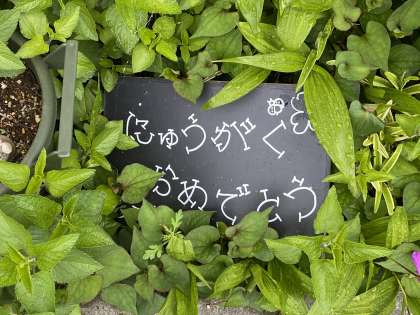 にゅうがくお
うめでとう